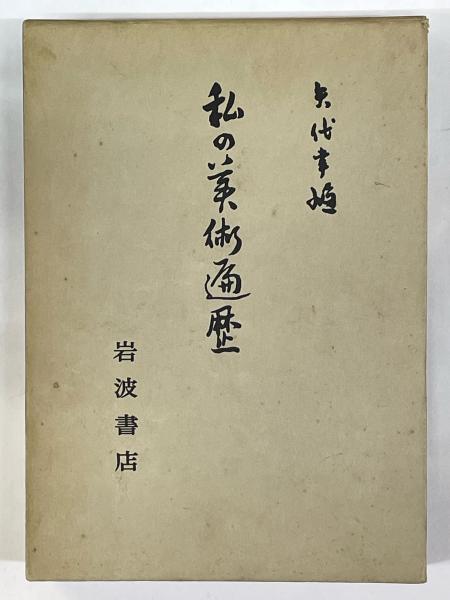 矢代幸雄
私の美術遍歴
岩波書店